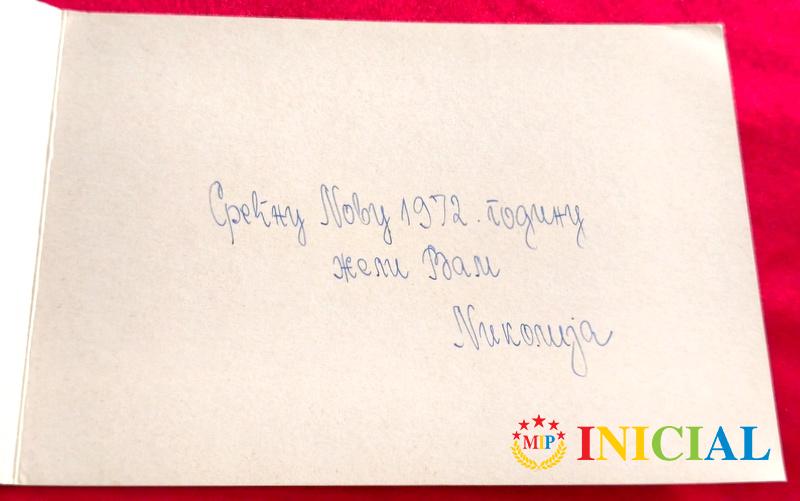 Срећну Nову 1972. годину
жели Вам
Nиколија
MIP INICIAL